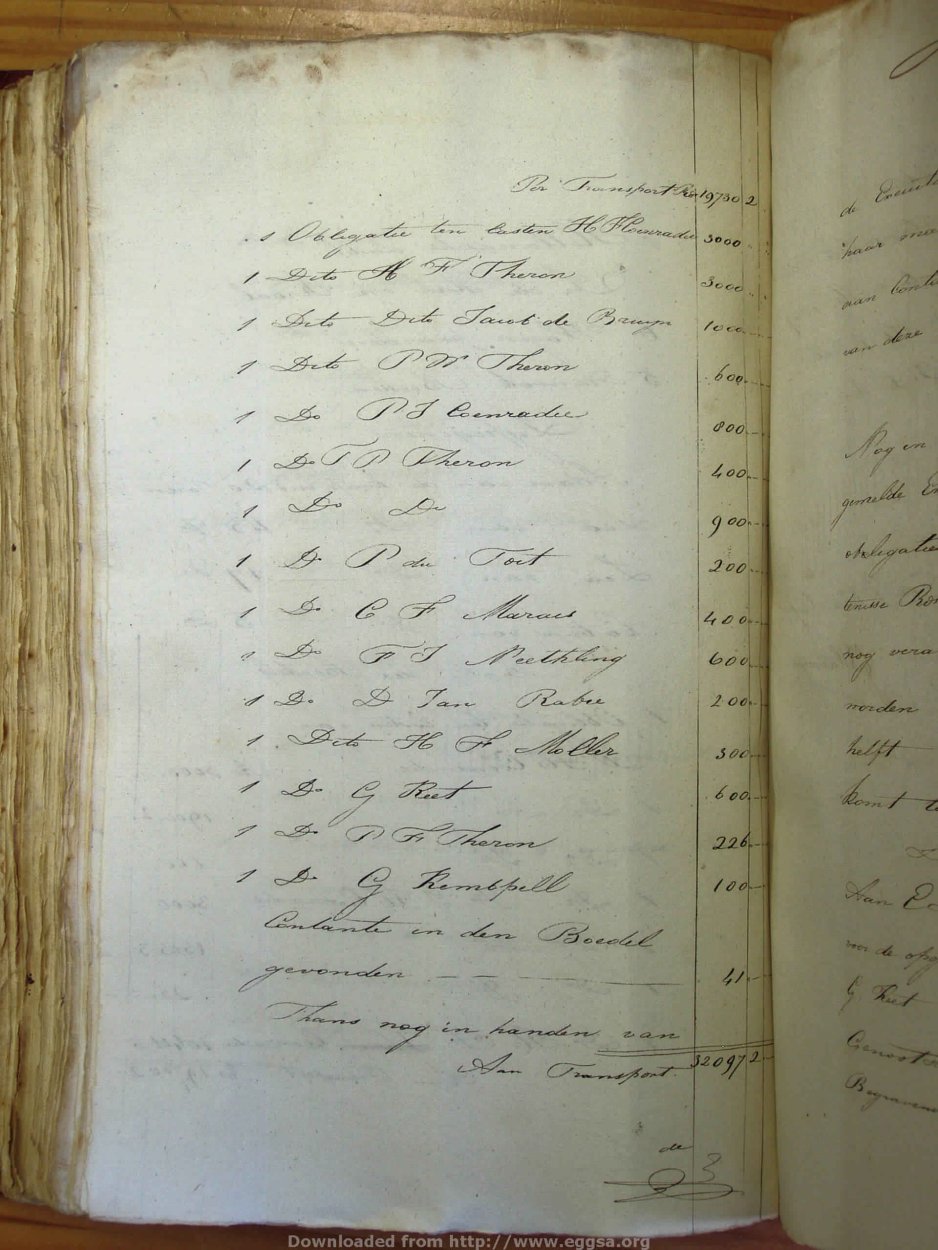 Per Transport Rds 19730 2
1 Obligatie ten lasten H H Coenradie 3000
1 Dito H F Theron 3000
1 Dito Dito Jacob de Bruyn 1000
1 Dito P W Theron 600
1 Do P J Coenradie 800
1 Do T P Theron 400
1 Do Do 900
1 Do P du Toit 200
1 Do C F Marais 400
1 Do F J Neethling 600
1 Do D Jan Rabie 200
1 Dito H F Moller 300
1 Do G Reet 600
1 Do P F Theron 226
1 Do G 100
Contante in den Boedel
gevonden 41
Thans nog in handen van
Aan Transport 32097 2
de
3
de
haar
aan
van deze
Nog en
gemelde
obligatie
tenisse
nog vera
worden
helft
komt
Aan
voor de
G Reet
Downloaded from http://www.eggsa.org